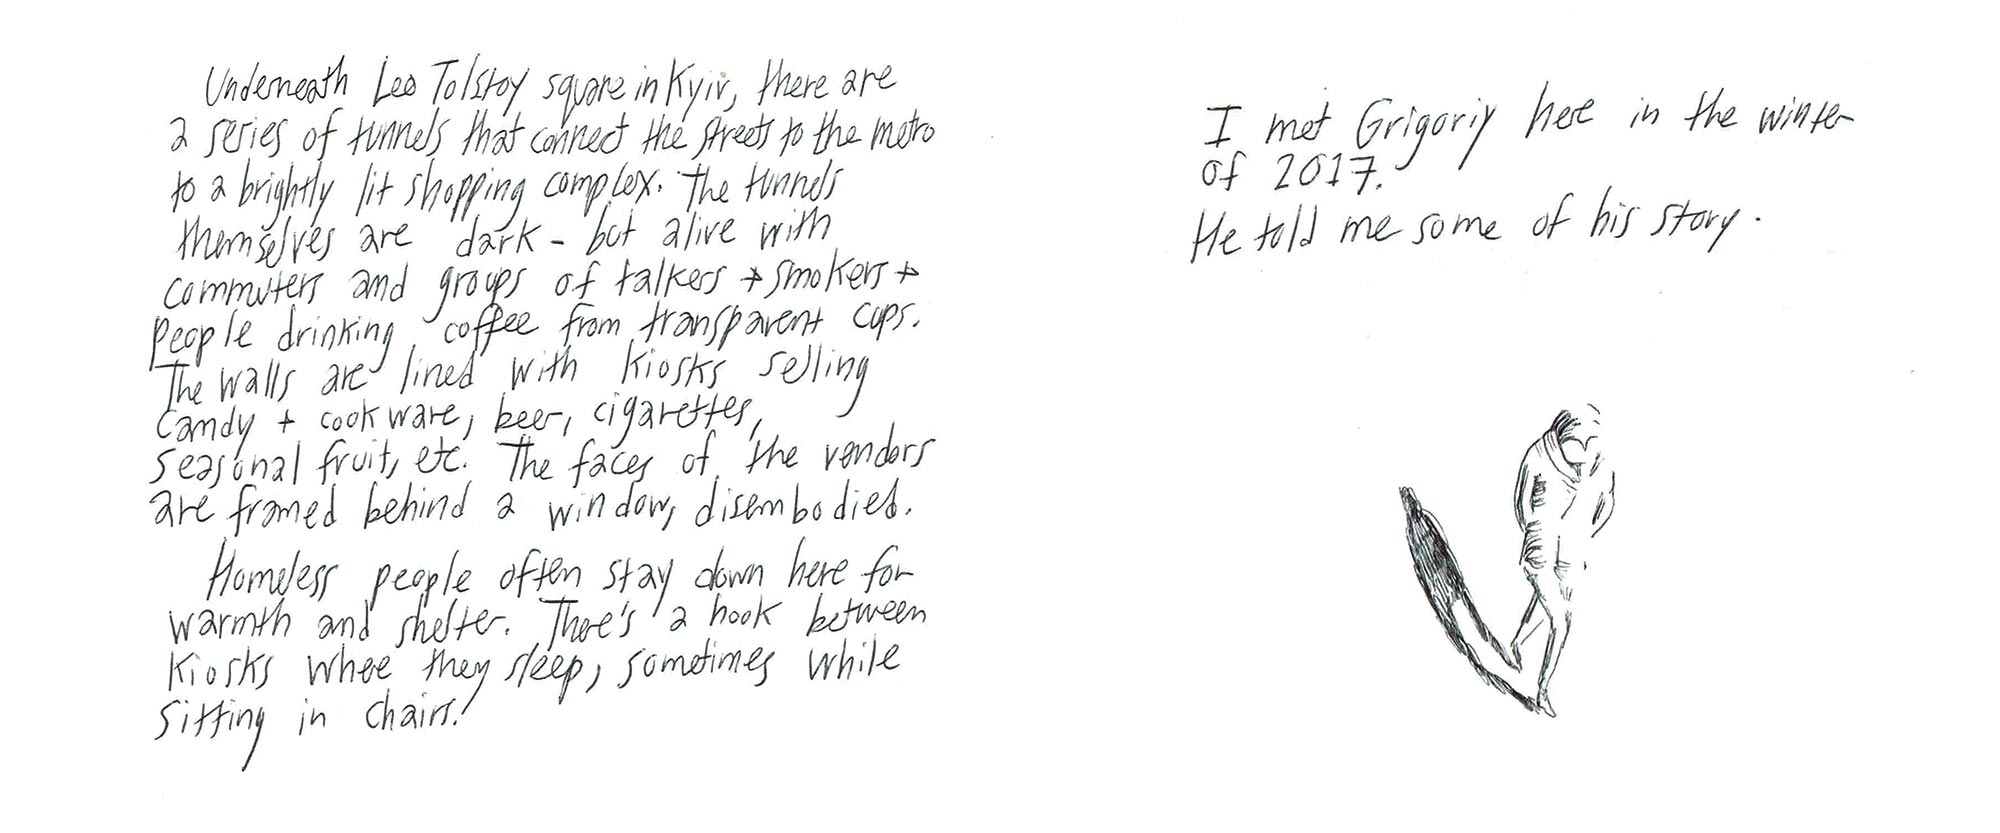 Underneath Leo Tolstoy square in Kyiv, there are
a series of tunnels that connect the streets to the metro
to a brightly lit shopping complex. The tunnels
themselves are dark - but alive with
commuters and groups of talkers + smokers +
people drinking coffee from transparent cups.
The walls are lined with kiosks selling
candy + cookware, beer, cigarettes,
seasonal fruit, etc. The faces of the vendors
are framed behind a window, disembodied.
Homeless people often stay down here for
warmth and shelter. There's a nook between
kiosks where they sleep, sometimes while
sitting in chairs.
I met Grigoriy here in the winter
of 2017.
He told me some of his story.